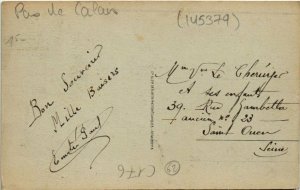 Pas de Calais
(145379)
Bon Souvenir
Mille Baisers
Emile Paul
Mme Vve Le
et ses enfants
39. Rue Gambetta
ancien no 33
Saint Ouen
Seine
C176
62